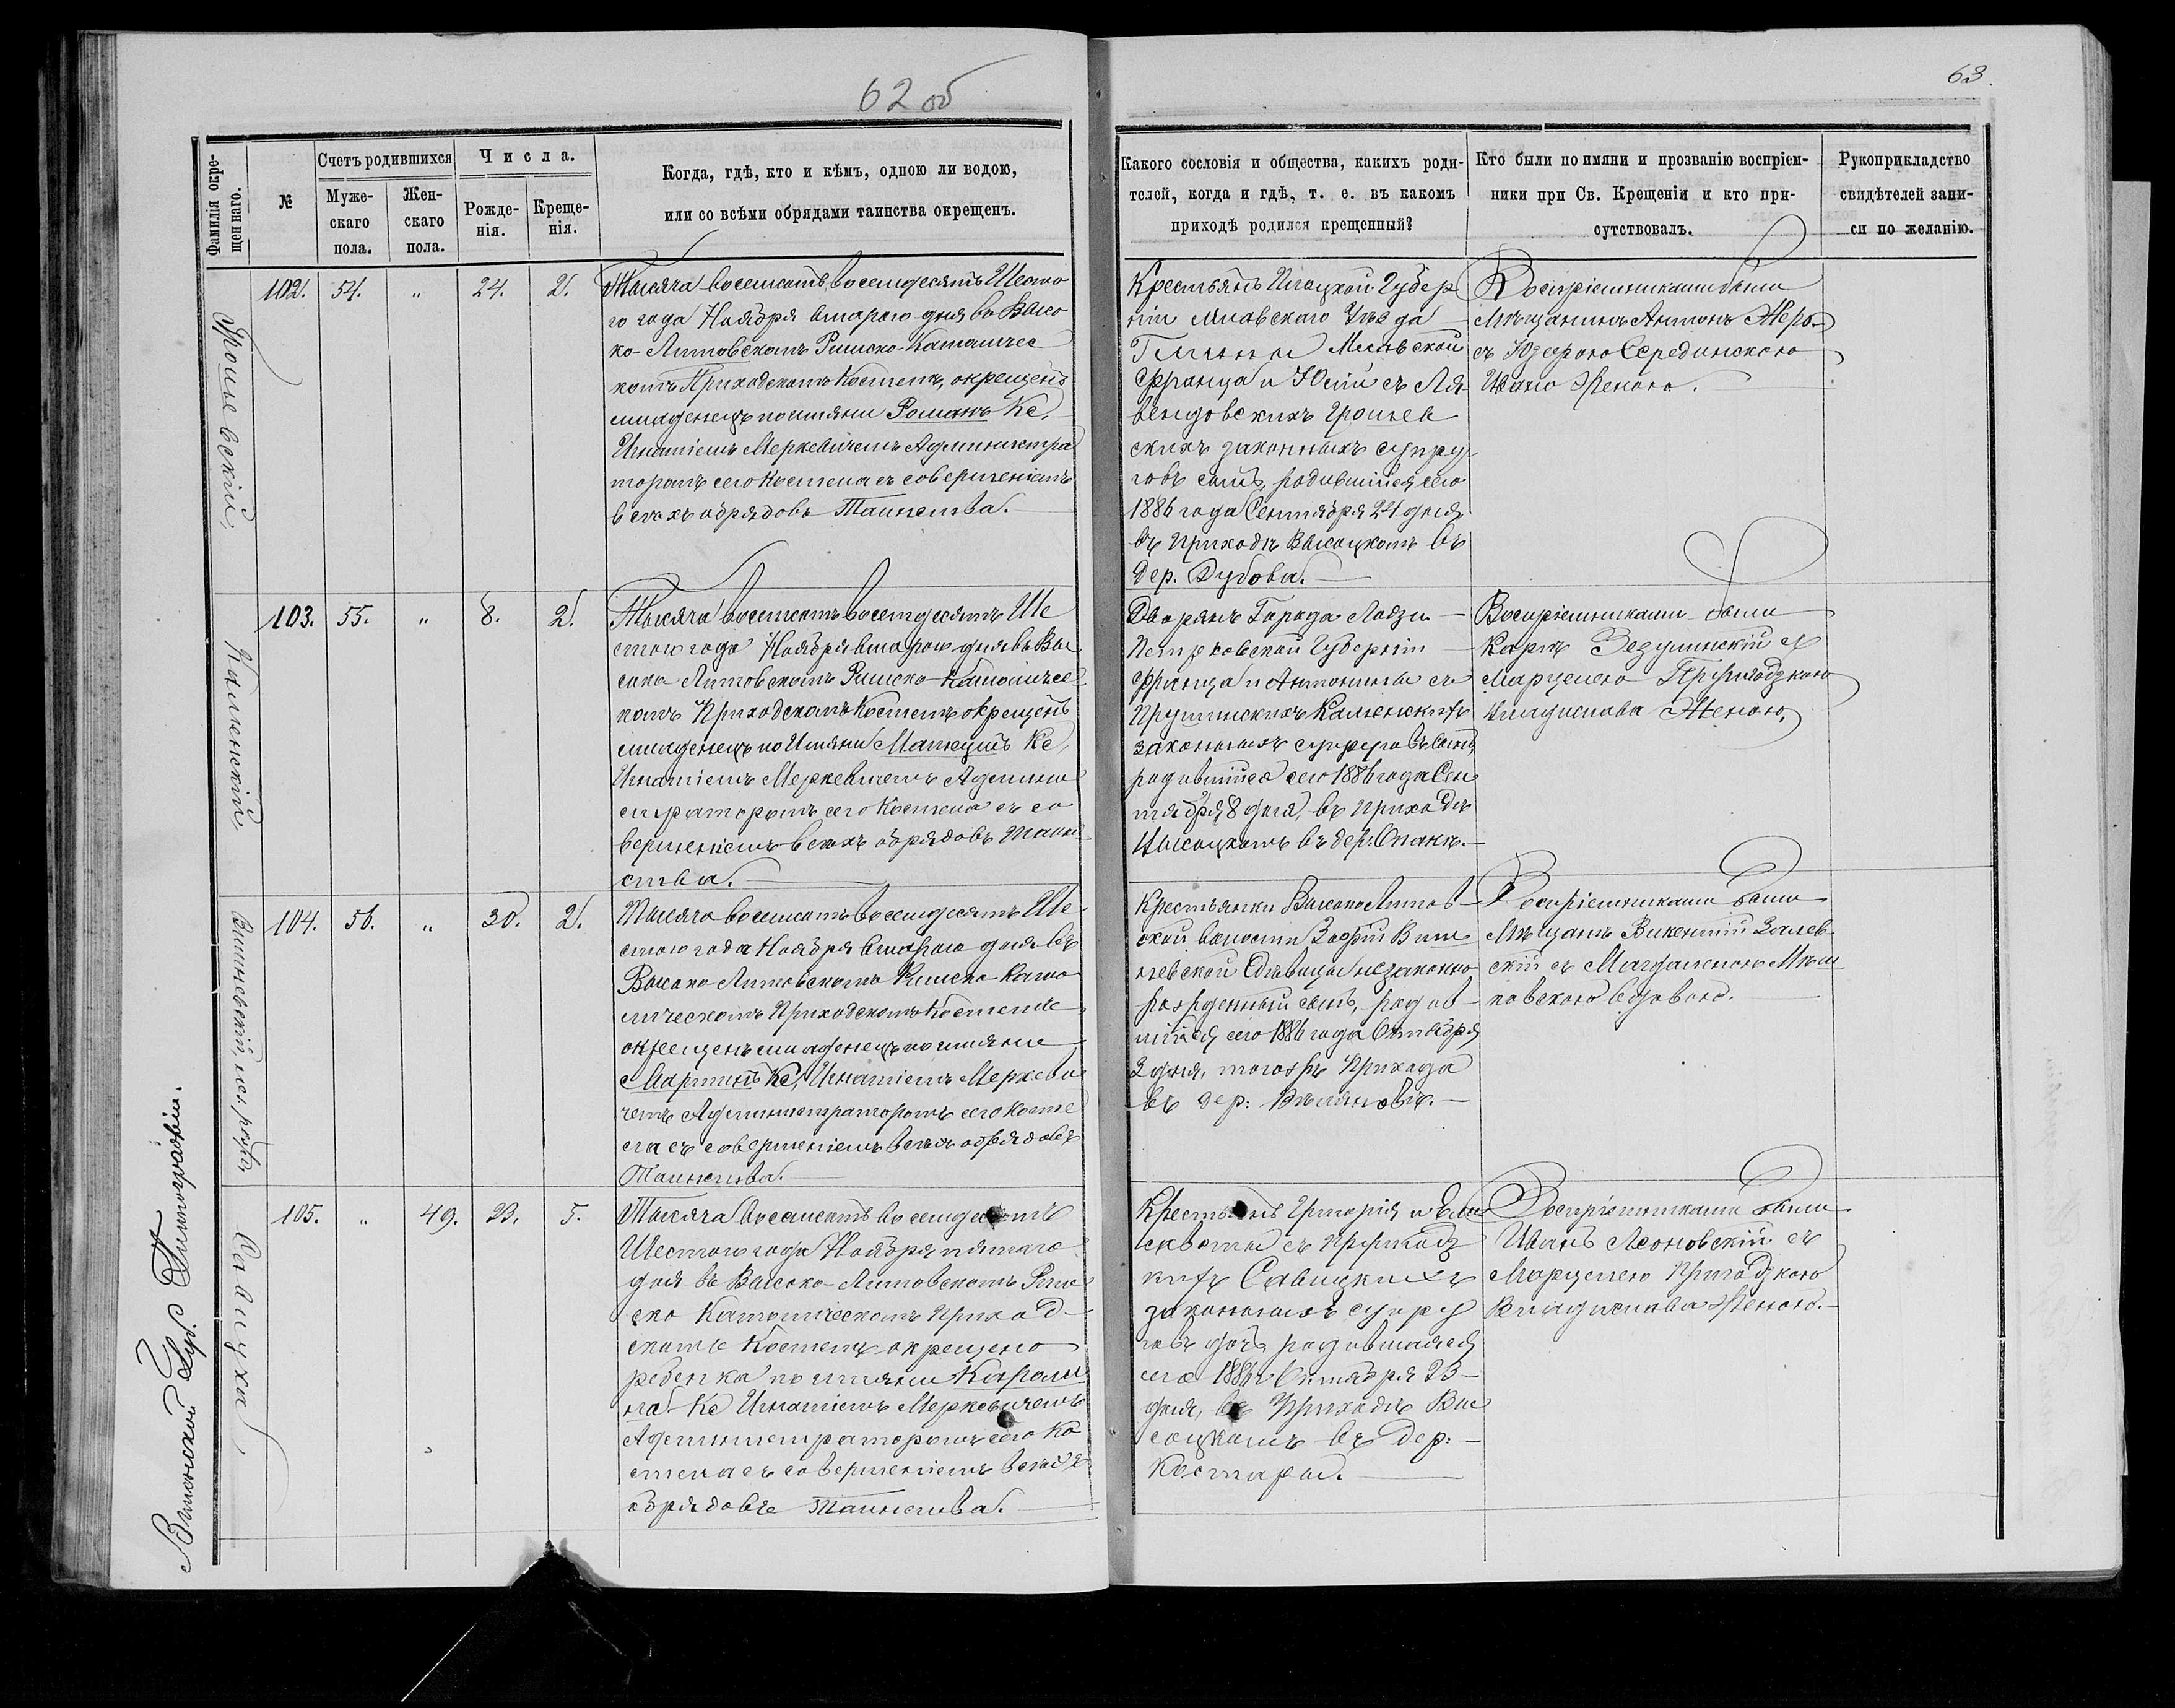 62 об
63.
Фамилія окре-
щеннаго.
№
Счетъ родившихся
Муже-
скаго
пола.
Жен-
скаго
пола.
Числа.
Рожде-
нія.
Креще-
нія.
Когда, гдѣ, кто и кѣмъ, одною ли водою,
или со всѣми обрядами таинства окрещенъ.
Какого сословія и общества, какихъ роди-
телей, когда и гдѣ, т. е. въ какомъ
приходѣ родился крещенный?
Кто были по имяни и прозванію воспріем-
ники при Св. Крещеніи и кто при-
сутствовалъ.
Рукоприкладство
свидѣтелей запи-
си по желанію.
102. 54. " 24. 2.
Тысяча восемсотъ восемдесятъ Шесто
го года Ноября втораго дня во Высо
ко-Литовскомъ Римско-Католичес
комъ Приходскомъ Костелѣ, окрещенъ
младенецъ по имяни Романъ Кс,
Игнатіемъ Меркевичемъ Администра
торомъ сего Костела съ совершеніемъ
всѣхъ обрядовъ Таинства.
Крестьянъ Плоцкой Губер
ніи Млавскаго Уѣзда
Гмины
Франца и Юліи съ Ля
вендовскихъ
скихъ законныхъ супру
говъ сынъ, родившійся сего
1886 года Сентября 24 дня
въ приходѣ Высоцкомъ въ
дер. Дубова.
Воспріемниками были
Мѣщанинъ Антонъ
съ Юзефою Серединскою
Ивана Женою.
103. 55. " 8. 2.
Каменскій
Тысяча восемсотъ восемдесятъ Ше
стого года Ноября втораго дня въ Вы
соко Литовскомъ Римско-Католичес
комъ Приходскомъ Костелѣ окрещенъ
младенецъ по Имяни Кс,
Игнатіемъ Меркевичемъ Админи
страторомъ сего Костела съ со
вершеніемъ всѣхъ обрядовъ Таин
ства.
Дворянъ Города Лодзи
Петроковской Губерніи
Франца и Антонины съ
Прушинскихъ Каменскихъ
законныхъ супруговъ сынъ,
родившійся сего 1886 года Сен
тября 8 дня, въ приходѣ
Высоцкомъ въ дер: Опакѣ.
Воспріемниками были
Карлъ съ
Марцелею
Владислава Женою,
104. 56. " 30. 2.
Вишневскій,
Тысяча восемсотъ восемдесятъ Ше
стого года Ноября втораго дня въ
Высоко Литовскомъ Римско-Като
лическомъ Приходскомъ Костелѣ
окрещенъ младенецъ по имяни
Мартинъ Кс, Игнатіемъ Меркеви
чемъ Администраторомъ сего Косте
ла съ совершеніемъ всѣхъ обрядовъ
Таинства.
Крестьянки Высоко Литов
ской волости Зофіи Виш
невской Дѣвицы незаконно
рожденный сынъ, родив
шійся сего 1886 года Октября
3 дня, тогожъ Прихода
въ дер:
Воспріемниками были
Мѣщанъ Викентій Залев
скій съ Магдаленою
ковскою вдовою.
105. " 49. 23. 5.
Савицка
Тысяча восемсотъ восемдесятъ
Шестого года Ноября пятаго
дня въ Высоко-Литовскомъ Рим
ско Католическомъ Приход
скомъ Костелѣ окрещено
ребенка по имяни Кароли
на Кс Игнатіемъ Меркевичемъ
Администраторомъ сего Ко
стела съ совершеніемъ всѣхъ
обрядовъ Таинства.
Крестьянъ Григорія и Ели
саветы съ
кихъ Савицкихъ
законныхъ супру
говъ дочь родившаяся
сего 1886 Октября 23
дня, въ Приходѣ Вы
соцкомъ въ дер:
Костары.
Воспріемниками были
Иванъ Леоновскій съ
Марцелею
Владислава Женою.